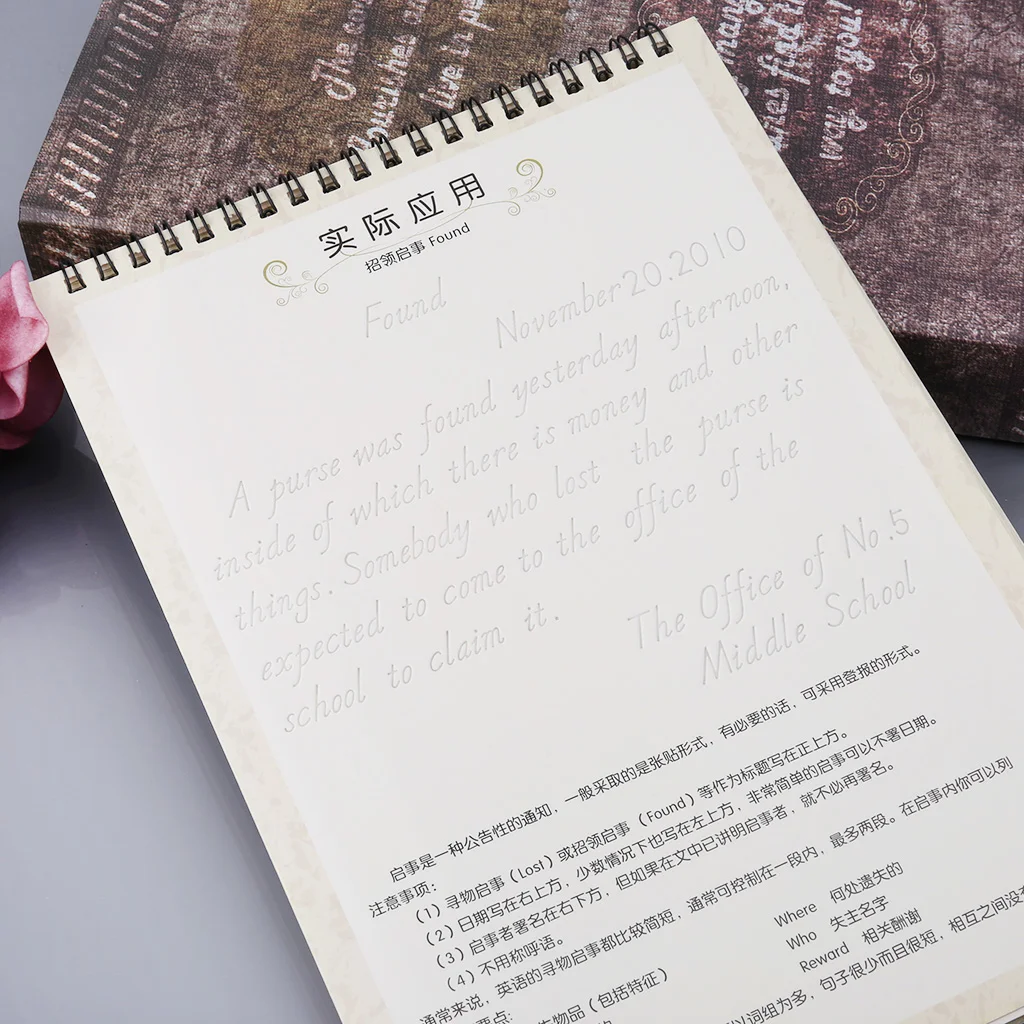 The
live in
many
times find th
way to you!
实际应用
招领启事 Found
Found
November20.2010
A purse was found yesterday afternoon,
inside of which there is money and other
things. Somebody who lost the purse is
expected to come to the office of the
school to claim it.
The Office of No.5
Middle School
启事是一种公告性的通知，一般采取的是张贴形式，有必要的话，可采用登报的形式。
注意事项：
（1）寻物启事（Lost）或招领启事（Found）等作为标题写在正上方。
（2）日期写在右上方，少数情况下也写在左上方，非常简单的启事可以不署日期。
（3）启事者署名在右下方，但如果在文中已讲明启事者，就不必再署名。
（4）不用称呼语。
通常来说，英语的寻物启事都比较简短，通常可控制在一段内，最多两段。在启事内你可以列
要点：
物品（包括特征）
Where 何处遗失的
Who 失主名字
Reward 相关酬谢
以词组为多，句子很少而且很短，相互之间没